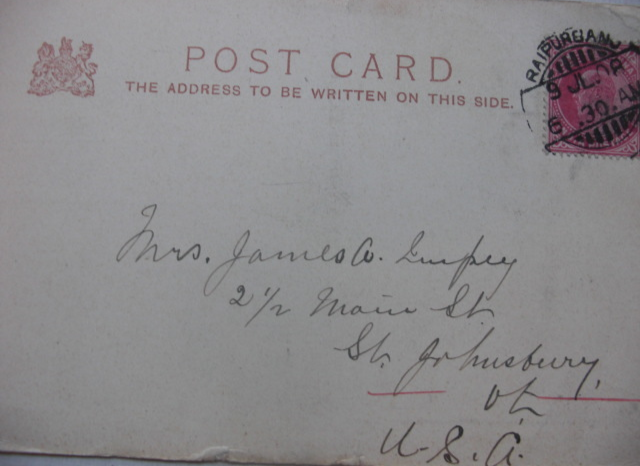 POST CARD.
THE ADDRESS TO BE WRITTEN ON THIS SIDE.
9 JL.
6 .30.AM
Mrs. James A.
2 1/2 Main St
St. Johnsbury,
Vt.
U.S.A.